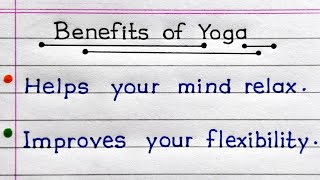 Benefits of Yoga
Helps your mind relax.
Improves your flexibility.